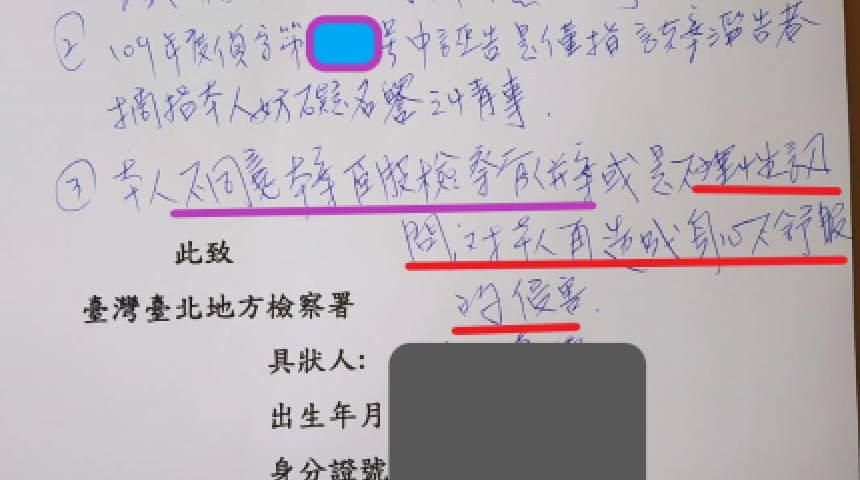 ② 109年度偵字第 號中誣告是僅指該案濫告者
摘指本人妨礙名譽之情事.
③ 本人不同意本案 檢察官 或是 對 性訊
問,對本人再造成身心不舒服
的侵害.
此致
臺灣臺北地方檢察署
具狀人:
出生年月
身分證號